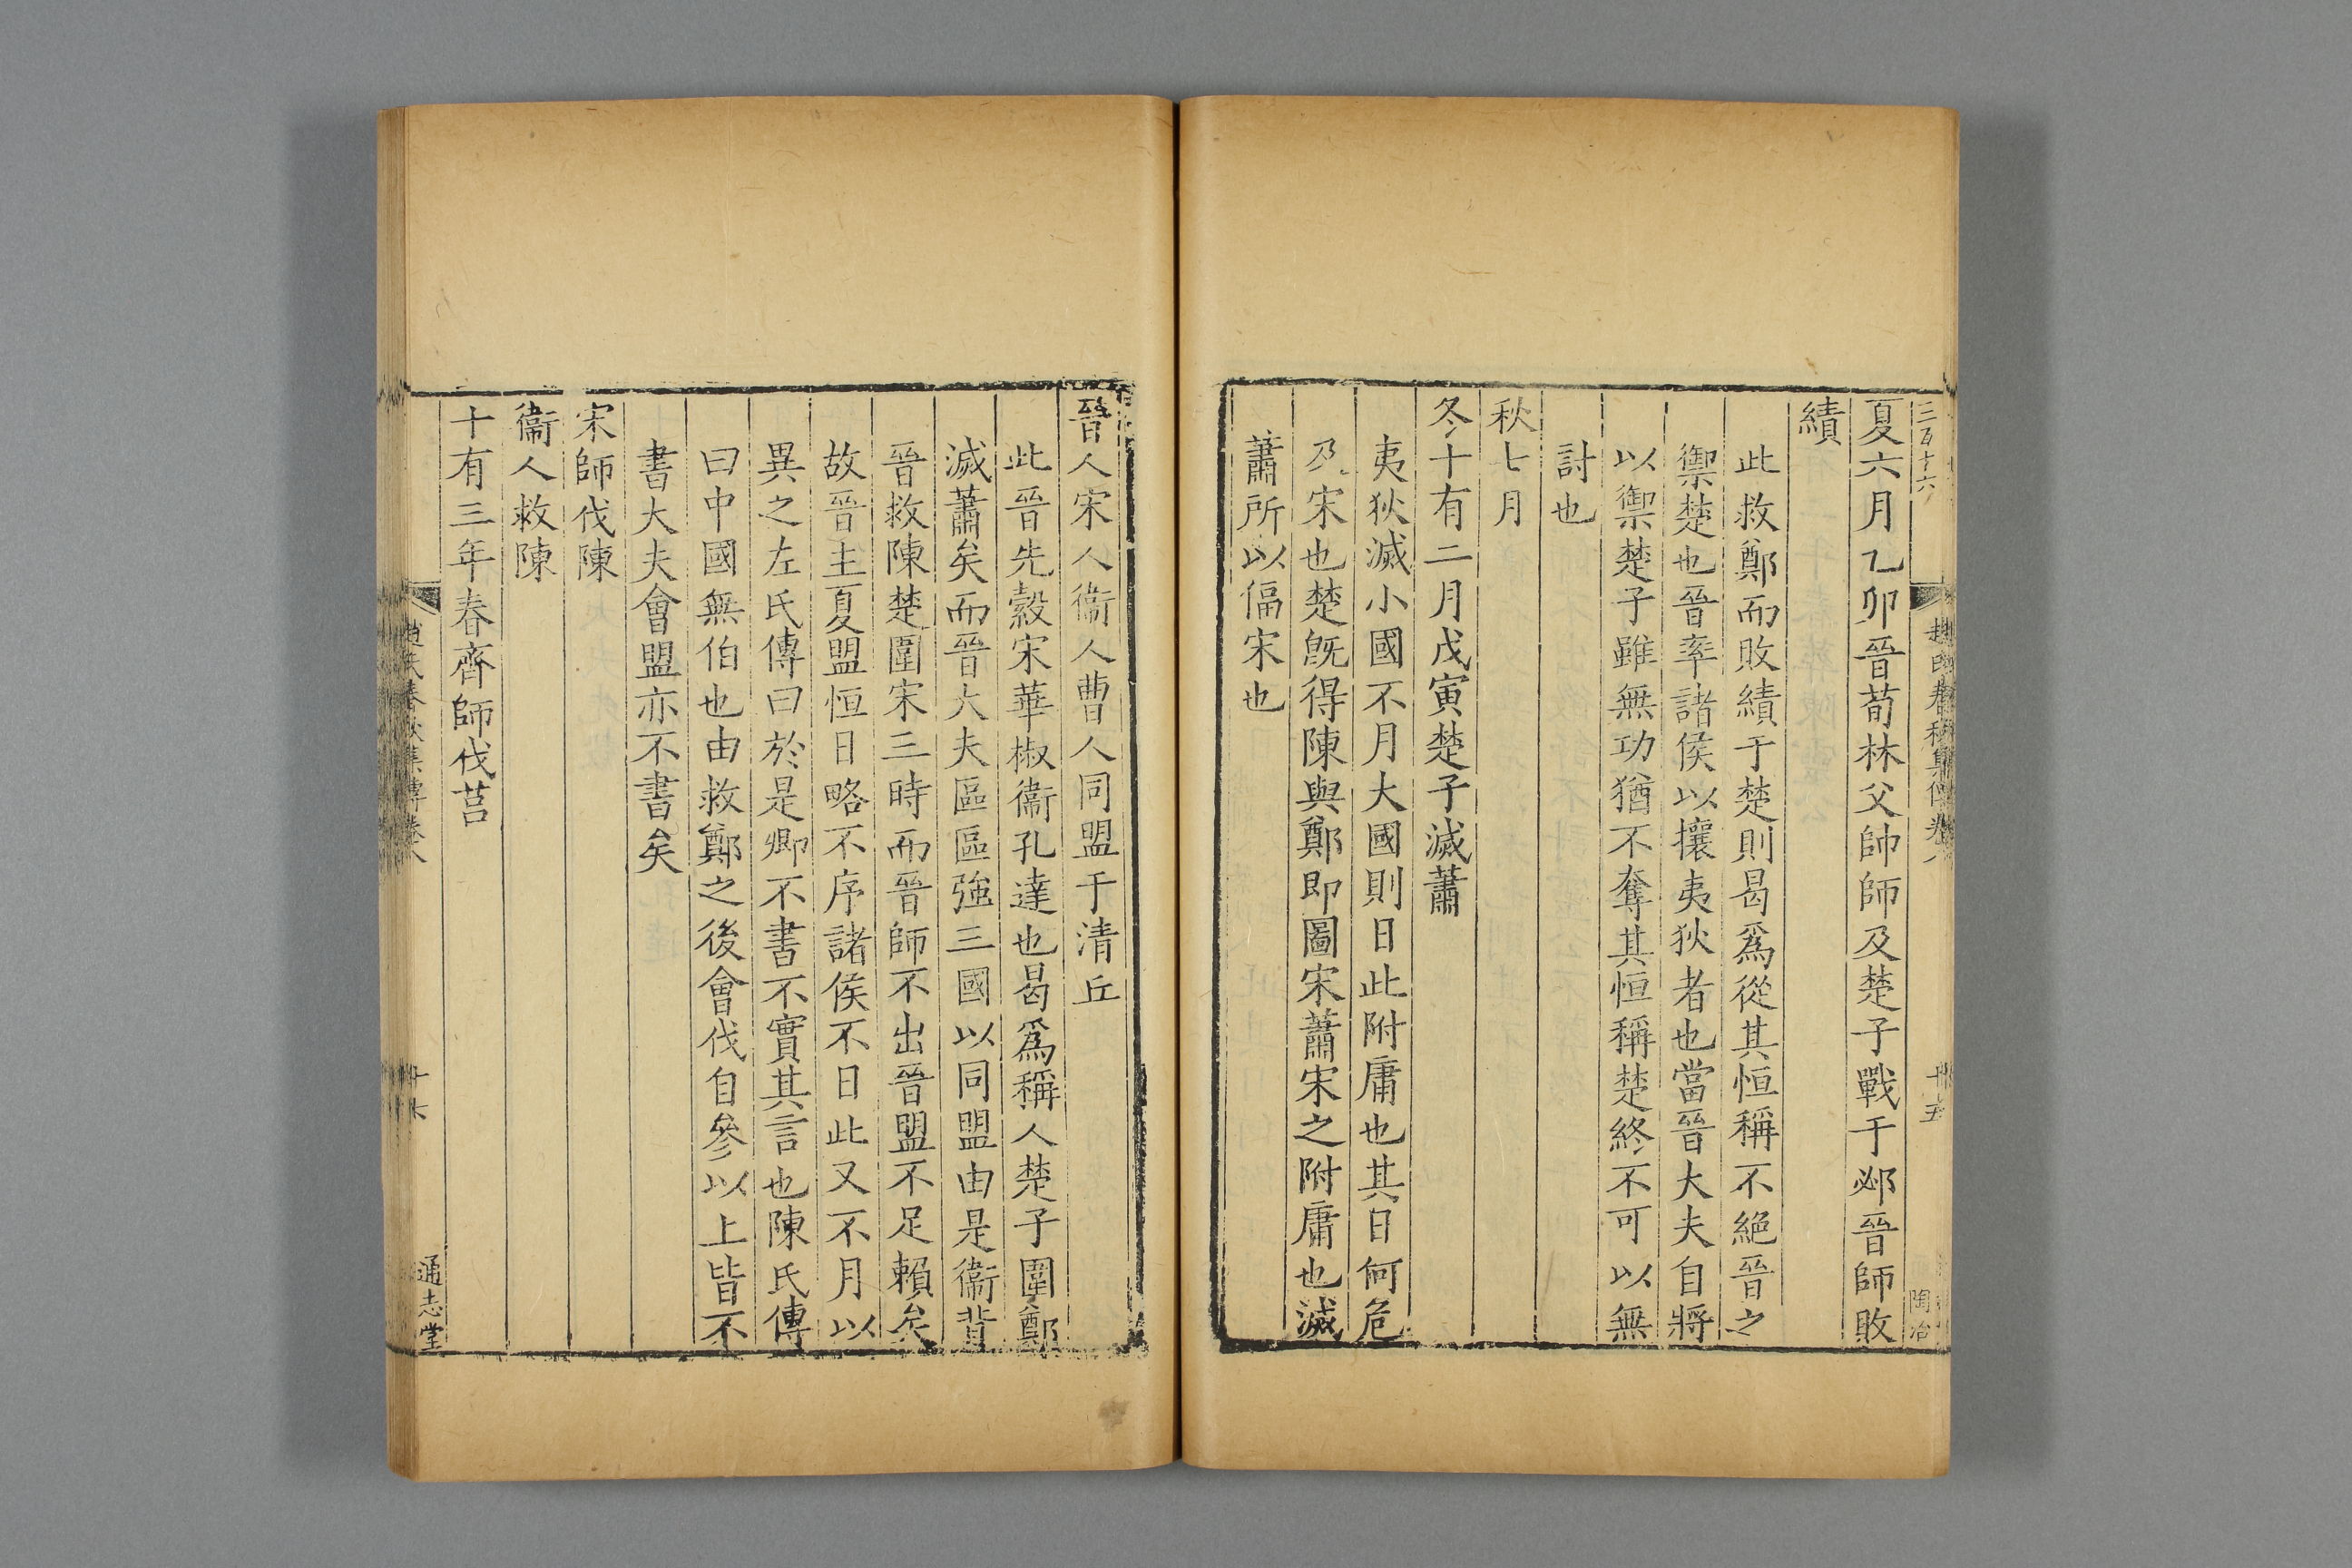 三百十六
趙氏春秋集傳卷八
十五
陶冶
夏六月乙卯晉荀林父帥師及楚子戰于邲晉師敗
績
此救鄭而敗績于楚則曷爲從其恒稱不絕晉之
禦楚也晉率諸侯以攘夷狄者也當晉大夫自將
以禦楚子雖無功猶不奪其恒稱楚終不可以無
討也
秋七月
冬十有二月戊寅楚子滅蕭
夷狄滅小國不月大國則日此附庸也其日何危
乃宋也楚旣得陳與鄭即圖宋蕭宋之附庸也滅
蕭所以偪宋也
晉人宋人衞人曹人同盟于清丘
此晉先縠宋華椒衞孔達也曷爲稱人楚子圍鄭
滅蕭矣而晉大夫區區強三國以同盟由是衞背
晉救陳楚圍宋三時而晉師不出晉盟不足賴矣
故晉主夏盟恒日略不序諸侯不日此又不月以
異之左氏傳曰於是卿不書不實其言也陳氏傳
曰中國無伯也由救鄭之後會伐自參以上皆不
書大夫會盟亦不書矣
宋師伐陳
衞人救陳
十有三年春齊師伐莒
趙氏春秋集傳卷八
十六
通志堂